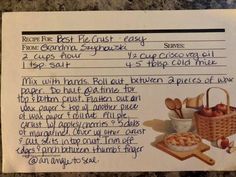 RECIPE FOR: Best Pie Crust - easy
FROM: Grandma Szychowski SERVES:
2 cups flour 1/2 cup Crisco veg oil
1 tsp salt 4-5 tblsp cold milk
Mix with hands. Roll out between 2 pieces of wax
paper. Do half at a time for
top & bottom crust. Flatten out on
wax paper & top w/ another piece
of wax paper & roll out. Fill pie
crust w/ apples/cherries & 5 dabs
of margarine. Cover w/ other crust
& cut slits in top crust. Trim off
edges & pinch between thumb & finger
@ an angle to seal.